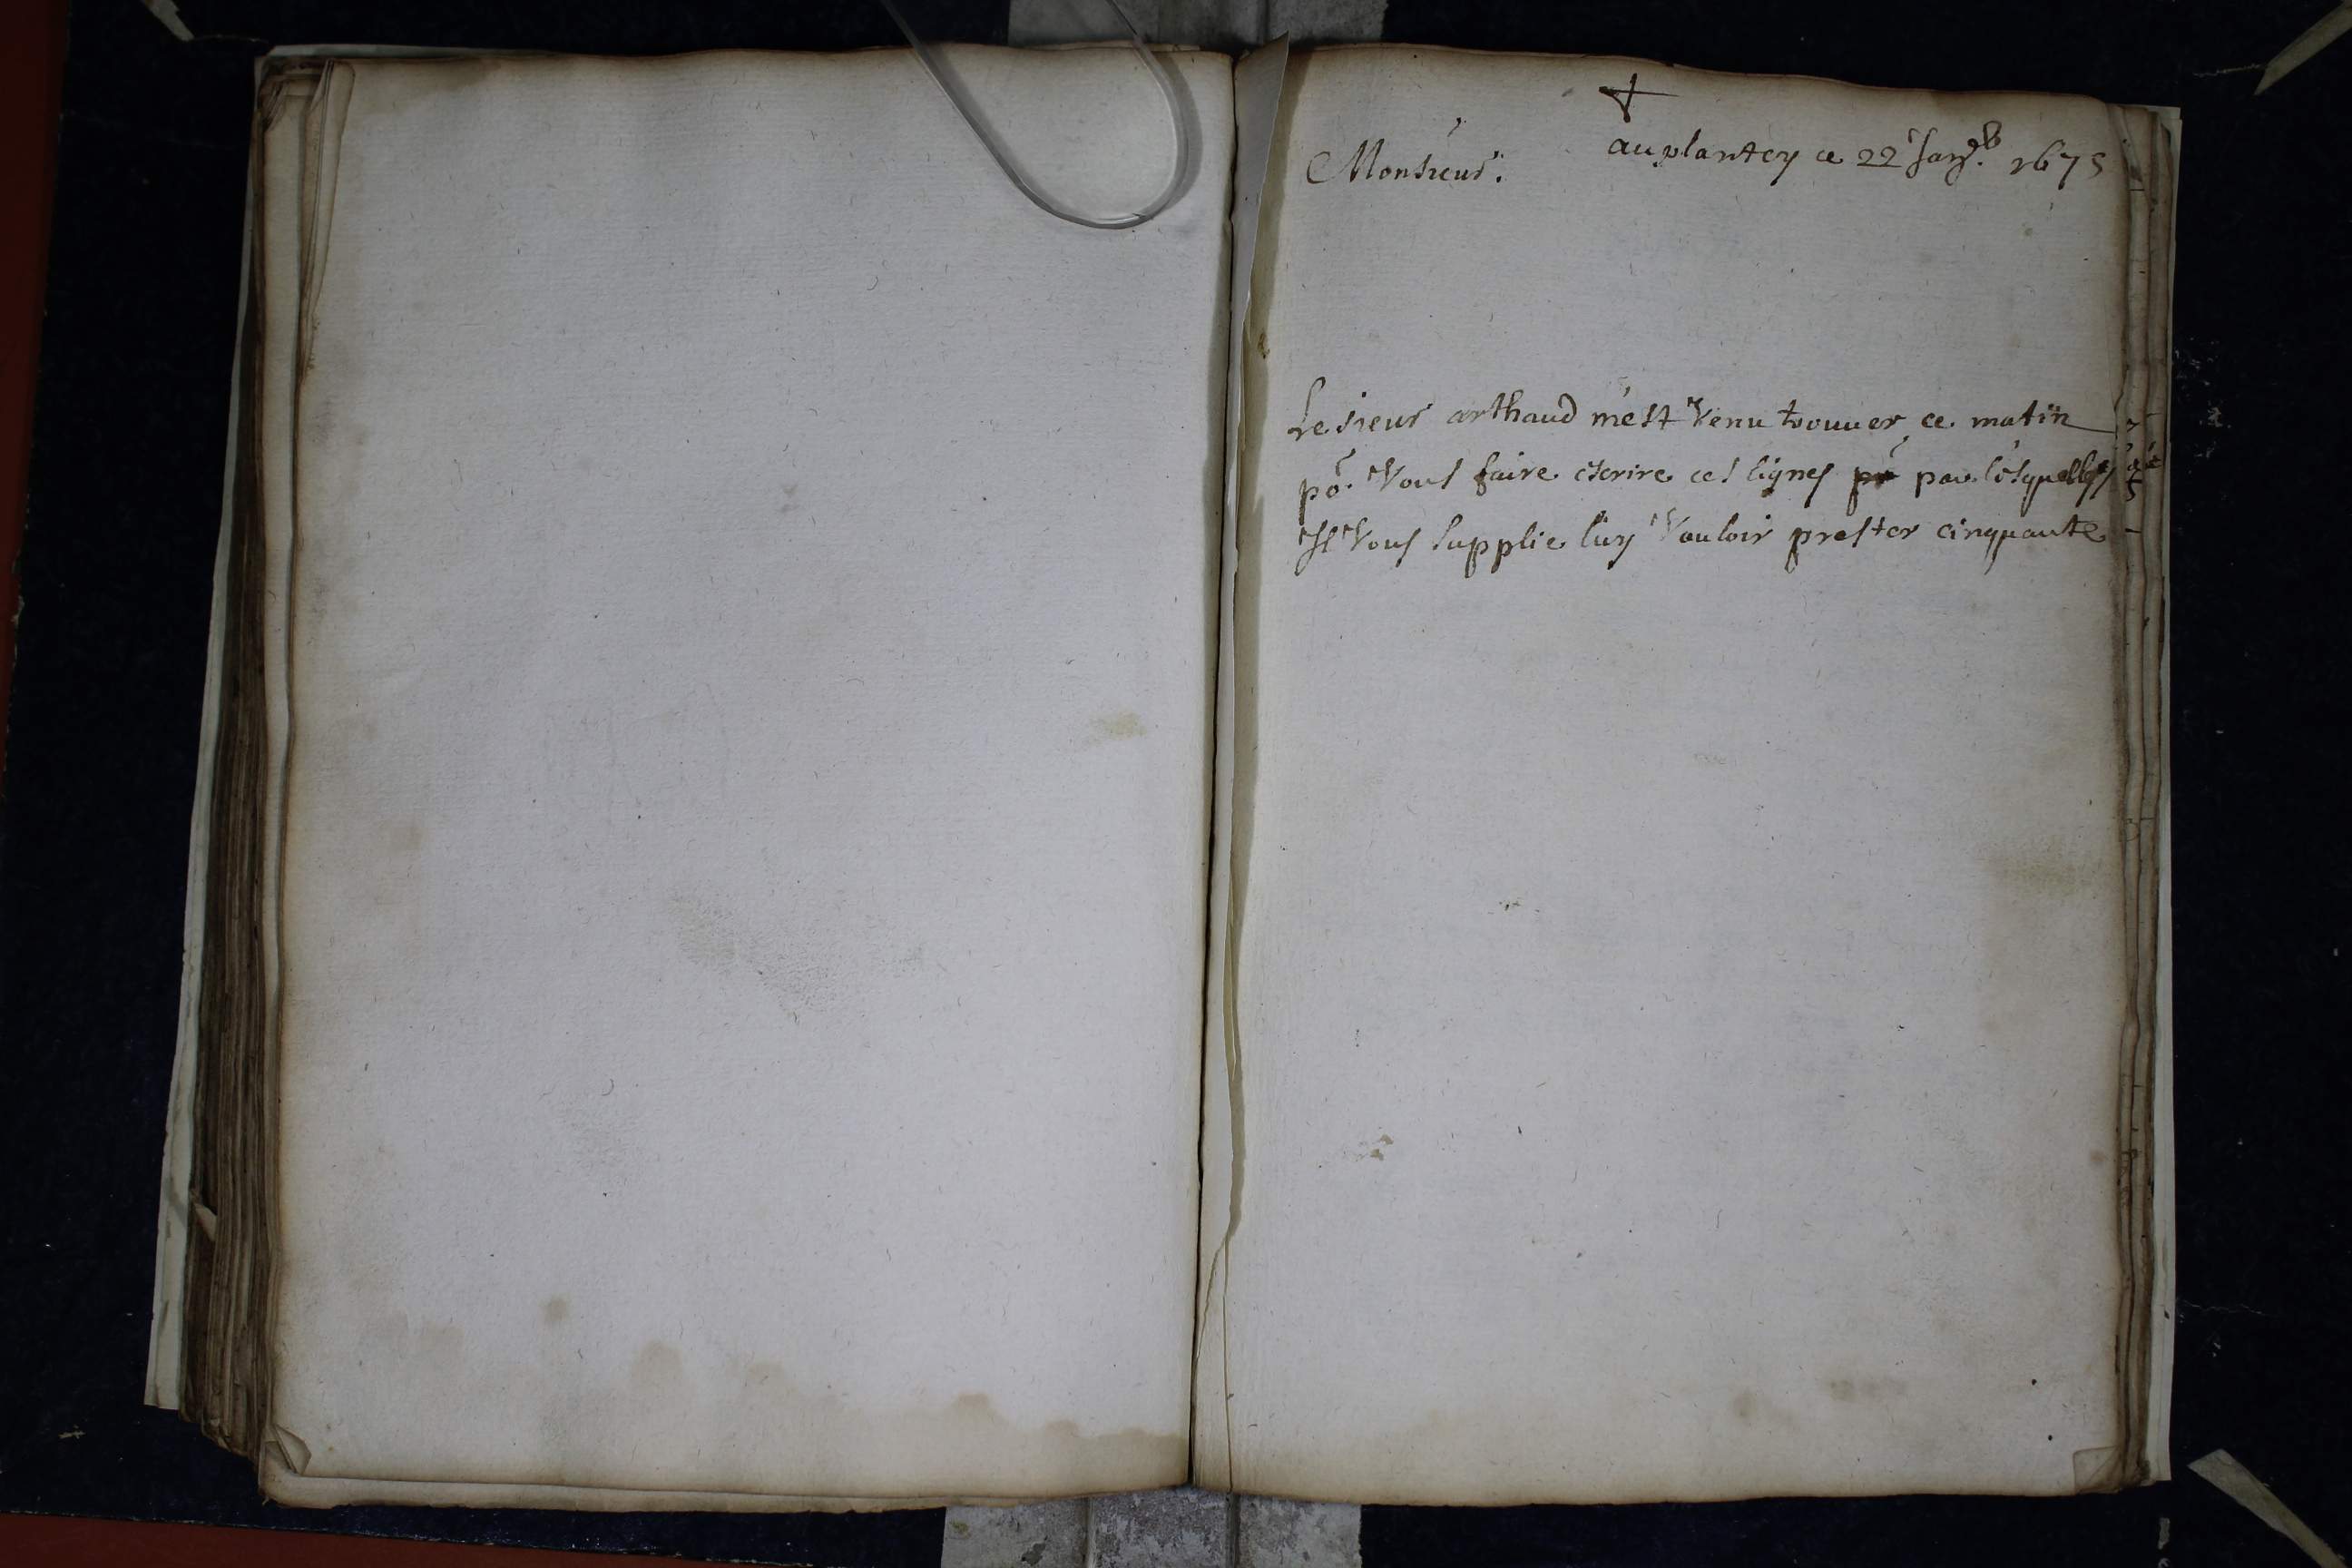 au plantey ce 22 Janv. 1675
Monsieur.
Le sieur arthaud m'est Venu trouuer ce matin
po.r Vous faire escrire ces lignes par lesquelles
Il Vous supplie luy Vouloir prester cinquante